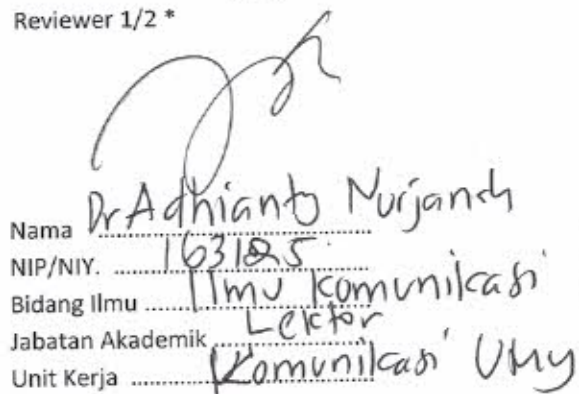 Reviewer 1/2 *
Nama Dr Adhianty Nurjanah
NIP/NIY. 163125
Bidang Ilmu Ilmu Komunikasi
Jabatan Akademik Lektor
Unit Kerja Komunikasi UMY